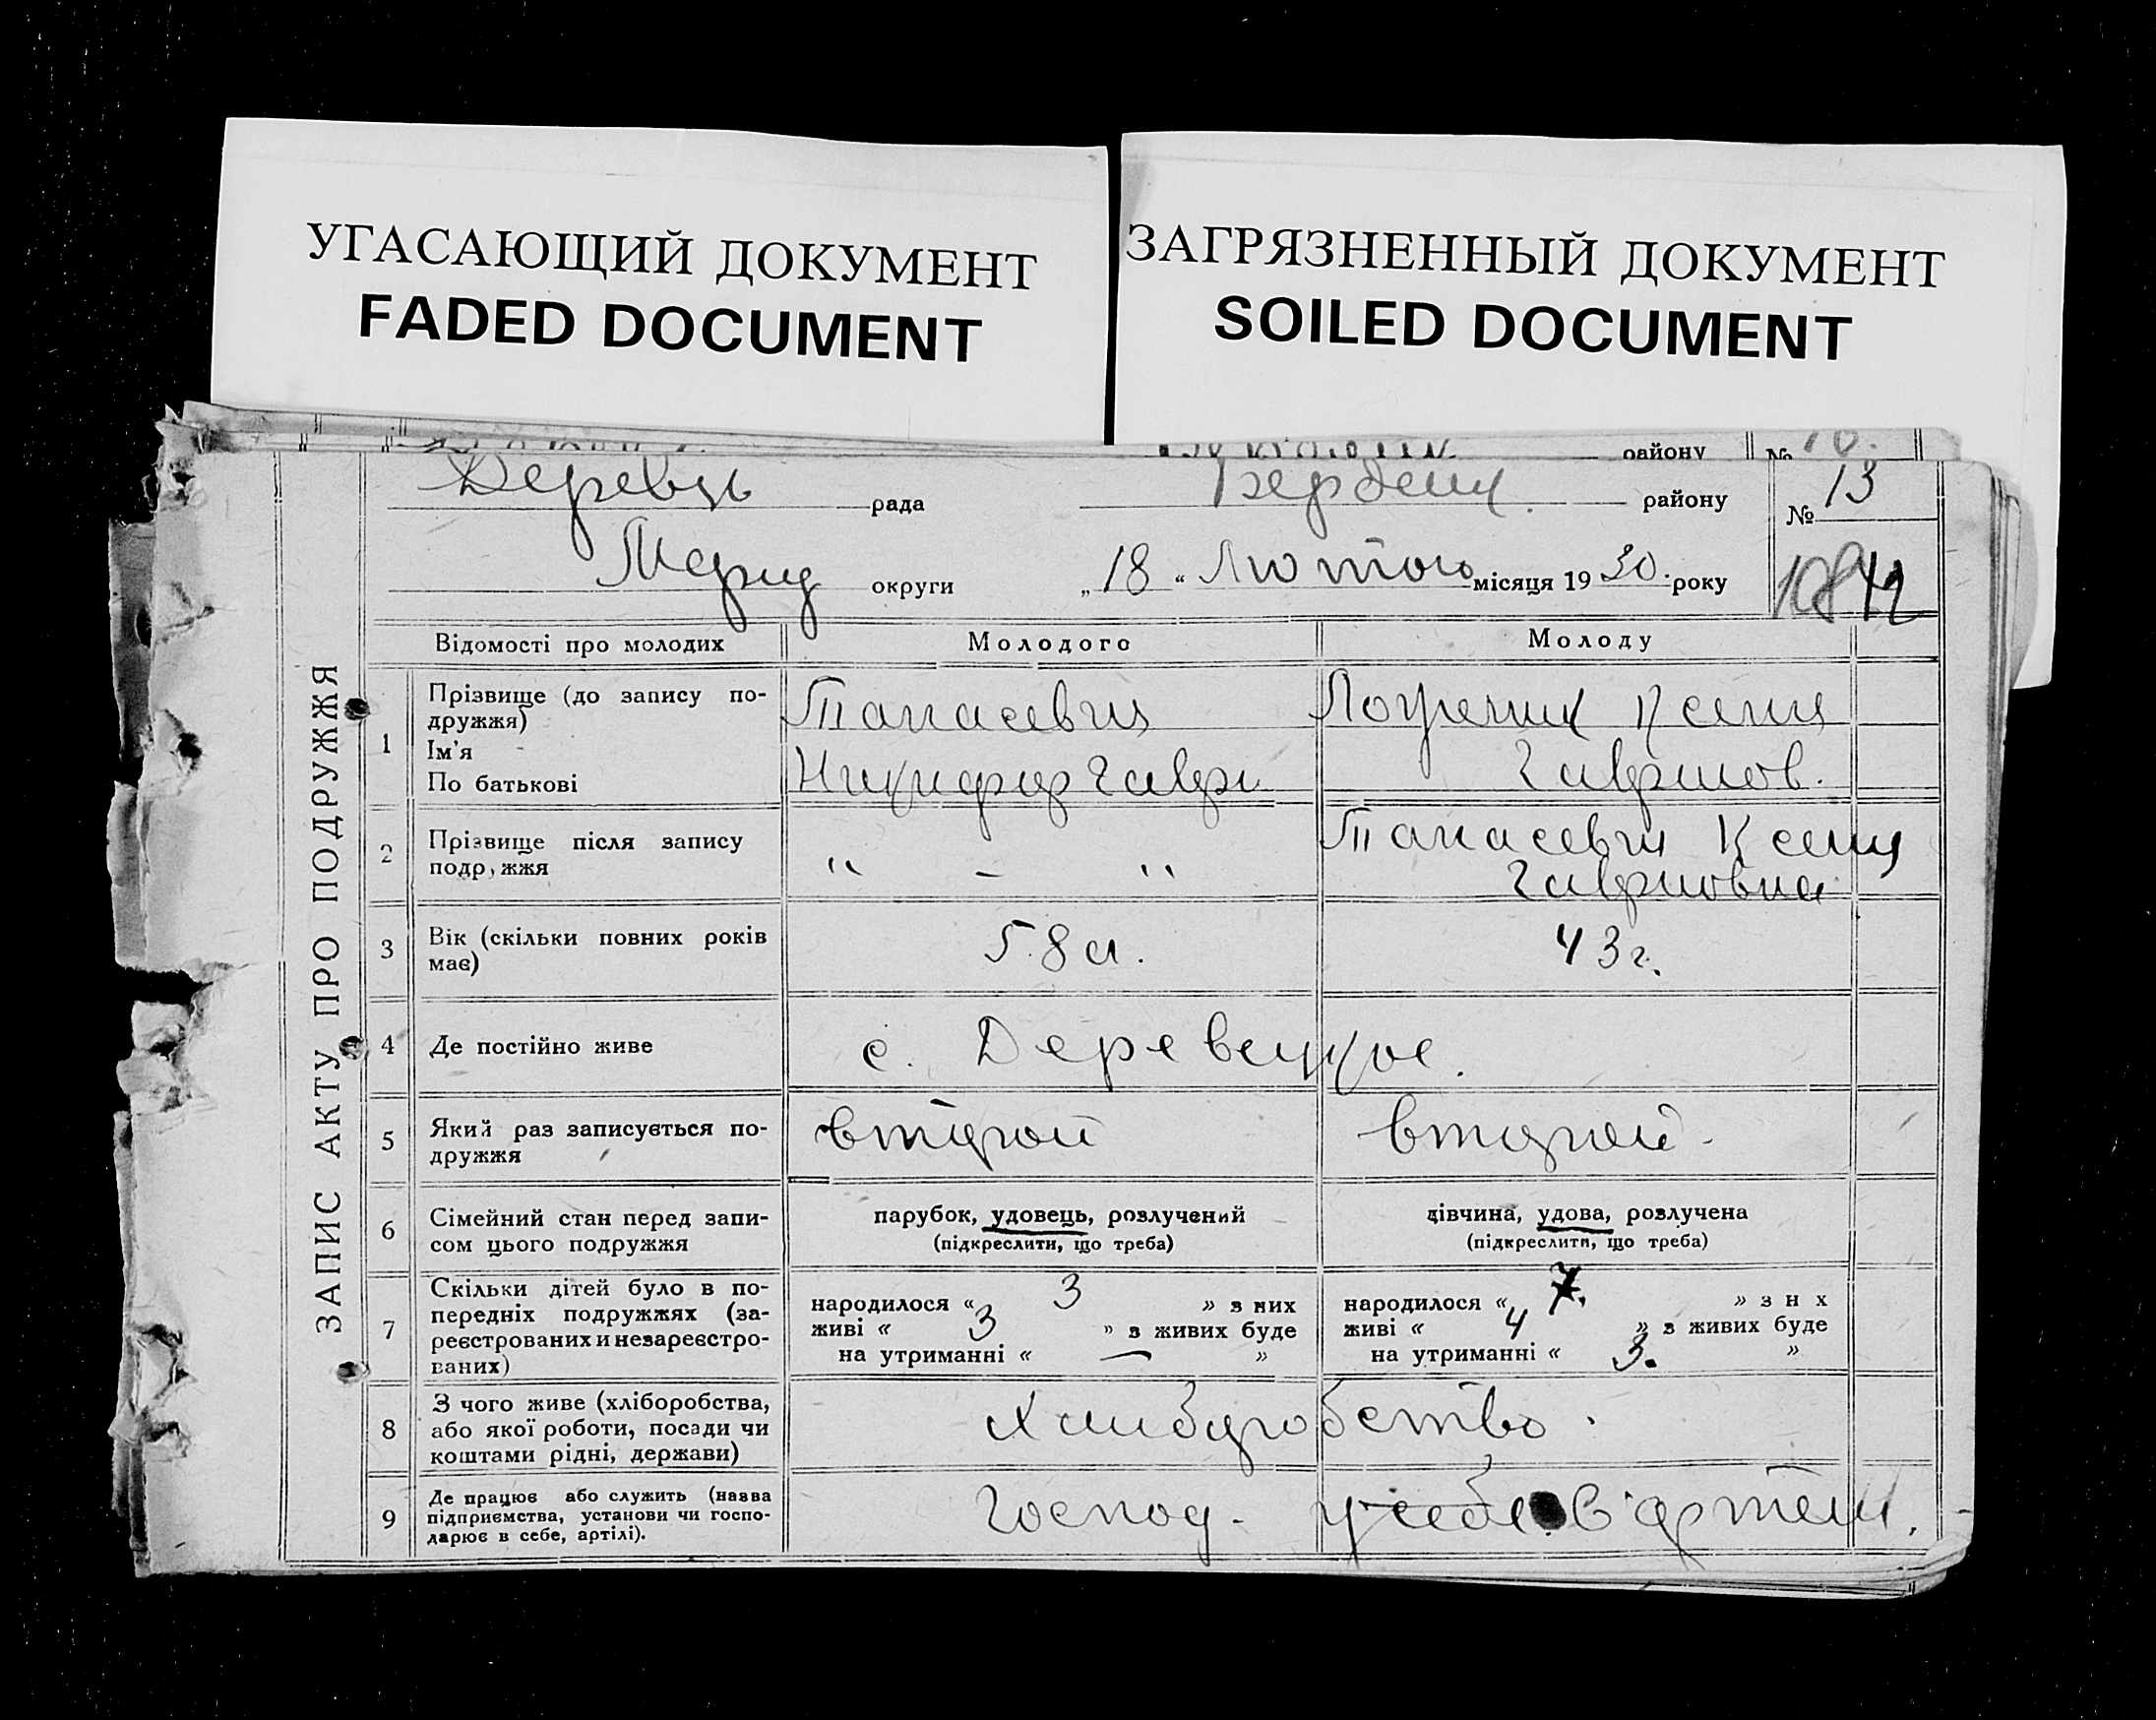 УГАСАЮЩИЙ ДОКУМЕНТ
FADED DOCUMENT
ЗАГРЯЗНЕННЫЙ ДОКУМЕНТ
SOILED DOCUMENT
району №
рада району № 13
округи „ 18 “ Лютого місяця 19 30. року
ЗАПИС АКТУ ПРО ПОДРУЖЖЯ
Відомості про молодих Молодого Молоду
1 Прізвище (до запису по-
дружжя)
Ім'я
По батькові
Танасевич Ксения
Никифор Гаври
2 Прізвище після запису
подр жжя
" — " Танасевич Ксения
3 Вік (скільки повних років
має)
58 л. 43 г.
4 Де постійно живе
с. Деревецкое.
5 Який раз записується по-
дружжя
второй второй -
6 Сімейний стан перед запи-
сом цього подружжя
парубок, удовець, розлучений
(підкреслити, що треба)
дівчина, удова, розлучена
(підкреслити, що треба)
7 Скільки дітей було в по-
передніх подружжях (за-
реєстрованих и незареєстро-
ваних)
народилося « 3 » з них
живі « 3 » з живих буде
на утриманні « — »
народилося « 7. » з н х
живі « 4 » з живих буде
на утриманні « 3. »
8 З чого живе (хліборобства,
або якої роботи, посади чи
коштами рідні, держави)
Хлиборобство.
9 Де працює або служить (назва
підприємства, установи чи госпо-
дарює в себе, артілі).
Господ. - у себе. в артели.